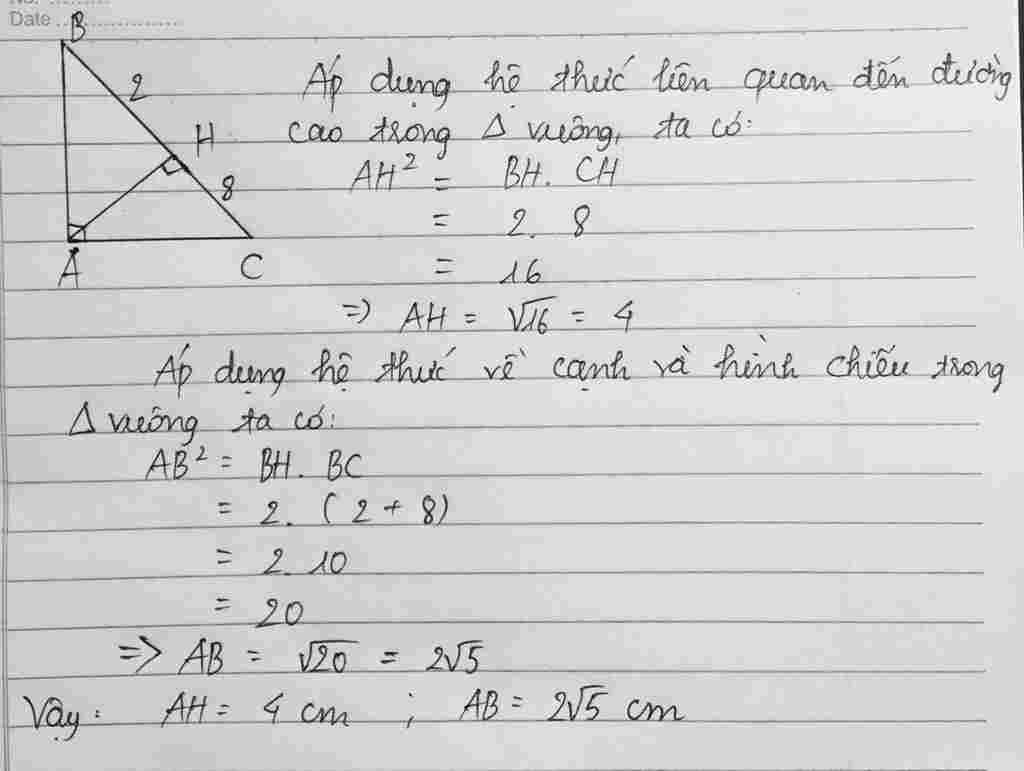 Date
B
2
H
8
A
C
Áp dụng hệ thức liên quan đến đường
cao trong Δ vuông, ta có:
AH² = BH. CH
= 2. 8
= 16
=> AH = √16 = 4
Áp dụng hệ thức về cạnh và hình chiếu trong
Δ vuông ta có:
AB² = BH. BC
= 2. (2 + 8)
= 2. 10
= 20
=> AB = √20 = 2√5
Vậy: AH = 4 cm ; AB = 2√5 cm